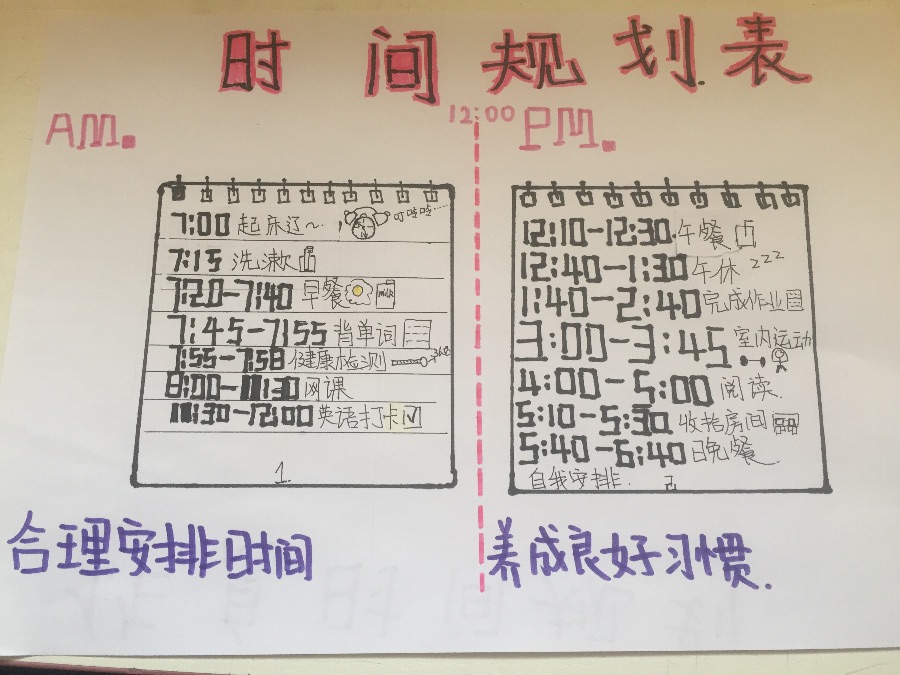 时间规划表
AM.
12:00
PM.
7:00 起床辽～ 叮咚咚
7:15 洗漱
7:20-7:40 早餐 milk
7:45-7:55 背单词
7:55-7:58 健康检测
8:00-11:30 网课
11:30-12:00 英语打卡
1.
12:10-12:30 午餐
12:40-1:30 午休 zzz
1:40-2:40 完成作业
3:00-3:45 室内运动
4:00-5:00 阅读.
5:10-5:30 收拾房间
5:40-6:40 晚餐.
自我安排.
2
合理安排时间
养成良好习惯.